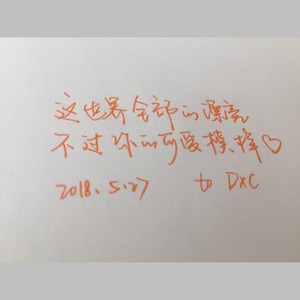 这世界全部的漂亮
不过你的可爱模样♡
2018.5.27 to DXC